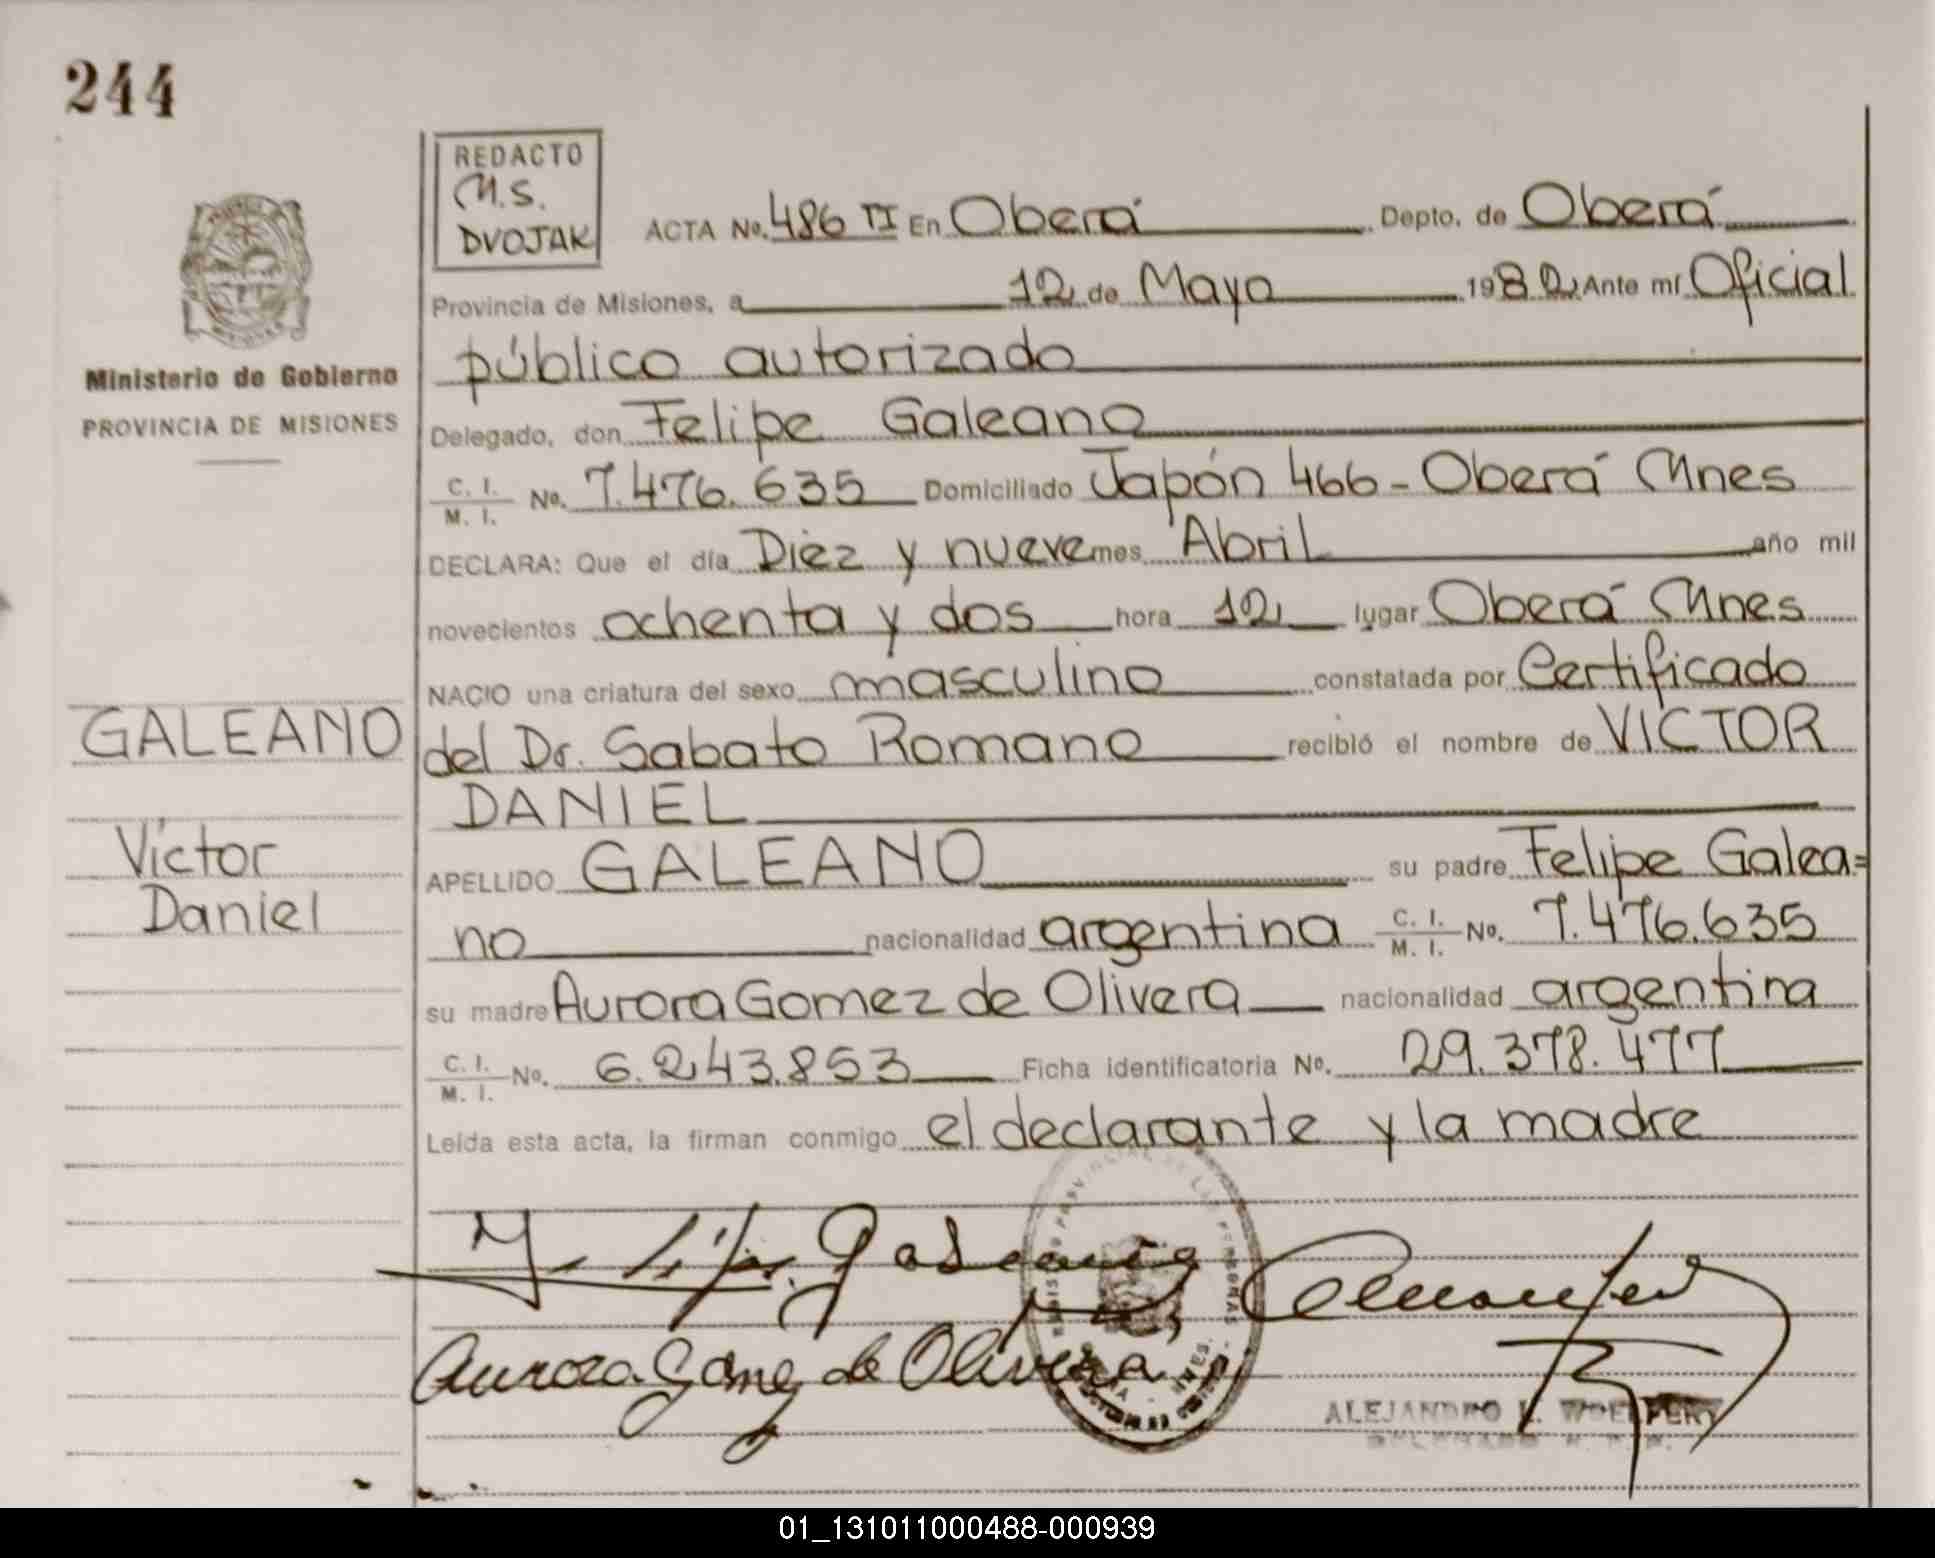 244
REDACTO
M.S.
DVOJAK
ACTA No. 486 TI En Oberá Depto. de Oberá
Provincia de Misiones, a 12 de Mayo 1982 Ante mí Oficial
público autorizado
Ministerio de Gobierno
PROVINCIA DE MISIONES
Delegado, don Felipe Galeano
C. I. / M. I. No. 7.476.635 Domiciliado Japón 466 - Oberá Mnes
DECLARA: Que el día Diez y nueve mes Abril año mil
novecientos ochenta y dos hora 12 lugar Oberá Mnes
NACIO una criatura del sexo masculino constatada por Certificado
GALEANO
del Dr. Sabato Romano recibió el nombre de VICTOR
DANIEL
Victor
Daniel
APELLIDO GALEANO su padre Felipe Galea=
no nacionalidad argentina C. I. / M. I. No. 7.476.635
su madre Aurora Gomez de Olivera nacionalidad argentina
C. I. / M. I. No. 6.243.853 Ficha identificatoria No. 29.378.477
Leida esta acta, la firman conmigo el declarante y la madre
Aurora Gomez de Olivera
ALEJANDRO
01_131011000488-000939